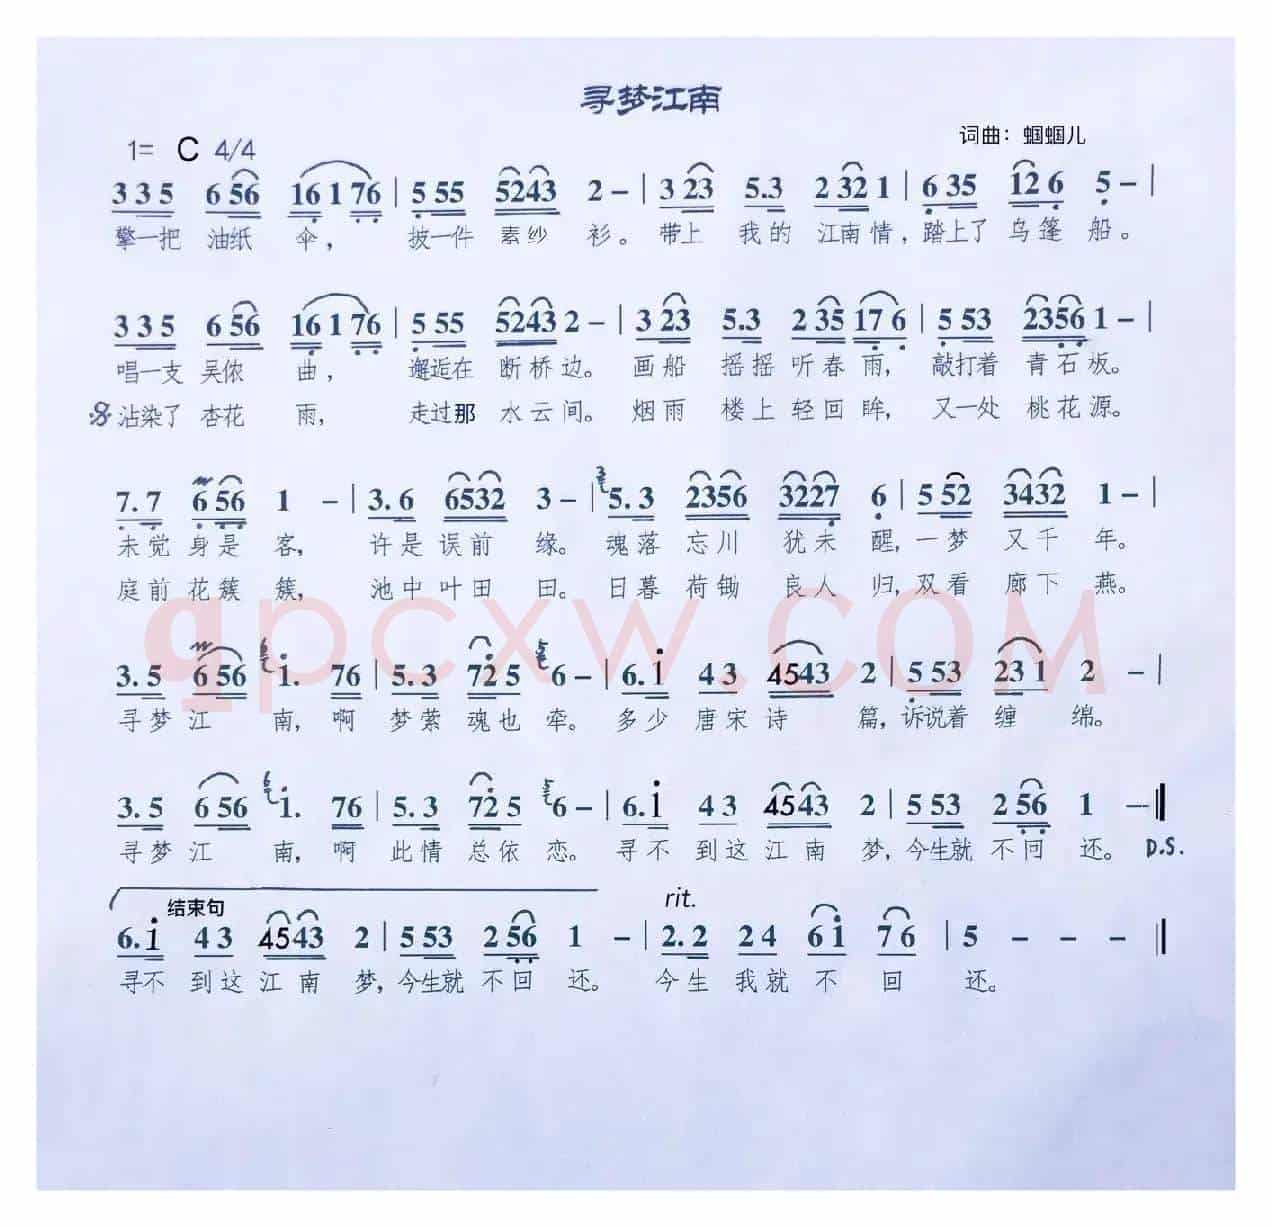 寻梦江南
1= C 4/4
词曲：蝈蝈儿
3 3 5 6 56 16 1 76 | 5 55 5243 2 – | 3 23 5.3 2 32 1 | 6 35 12 6 5 – |
擎一把 油纸 伞， 披一件 素纱 衫。带上 我的 江南情，踏上了 乌篷 船。
3 3 5 6 56 16 1 76 | 5 55 5243 2 – | 3 23 5.3 2 35 17 6 | 5 53 2356 1 – |
唱一支 吴侬 曲， 邂逅在 断桥边。 画船 摇摇 听春雨，敲打着 青石板。
沾染了 杏花 雨， 走过那 水云间。 烟雨 楼上 轻回眸， 又一处 桃花源。
7. 7 6 56 1 – | 3. 6 6532 3 – | 3 5. 3 2356 3227 6 | 5 52 3432 1 – |
未觉 身是 客， 许是 误前 缘。 魂落 忘川 犹未 醒，一梦 又千 年。
庭前 花簇 簇， 池中 叶田 田。 日暮 荷锄 良人 归，双看 廊下 燕。
3. 5 6 56 6 i. 76 | 5. 3 72 5 5 6 – | 6. i 4 3 4543 2 | 5 53 23 1 2 – |
寻梦 江 南，啊 梦萦 魂也 牵。 多少 唐宋 诗 篇，诉说着 缠 绵。
3. 5 6 56 6 i. 76 | 5. 3 72 5 5 6 – | 6. i 4 3 4543 2 | 5 53 2 56 1 –
寻梦 江 南，啊 此情 总依 恋。 寻不 到这 江南 梦，今生就 不回 还。 D.S.
结束句 rit.
6. i 4 3 4543 2 | 5 53 2 56 1 – | 2. 2 2 4 6 i 7 6 | 5 – – –
寻不 到这 江南 梦，今生就 不回 还。 今生 我就 不 回 还。
qpcxw.COM